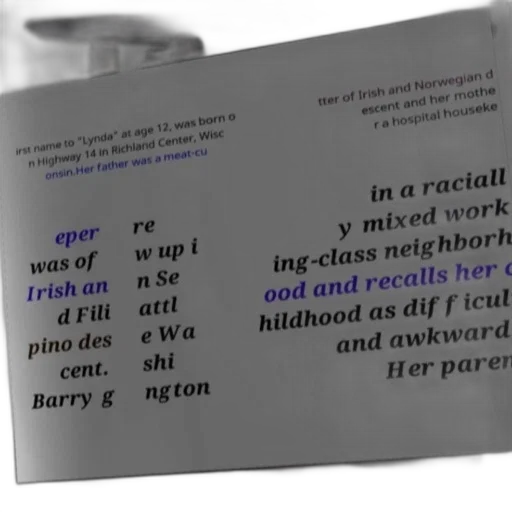 irst name to "Lynda" at age 12, was born o
n Highway 14 in Richland Center, Wisc
onsin.Her father was a meat-cu
tter of Irish and Norwegian d
escent and her mothe
r a hospital houseke
eper
was of
Irish an
d Fili
pino des
cent.
Barry g
re
w up i
n Se
attl
e Wa
shi
ngton
in a raciall
y mixed work
ing-class neighborh
ood and recalls her c
hildhood as difficul
and awkward
Her paren